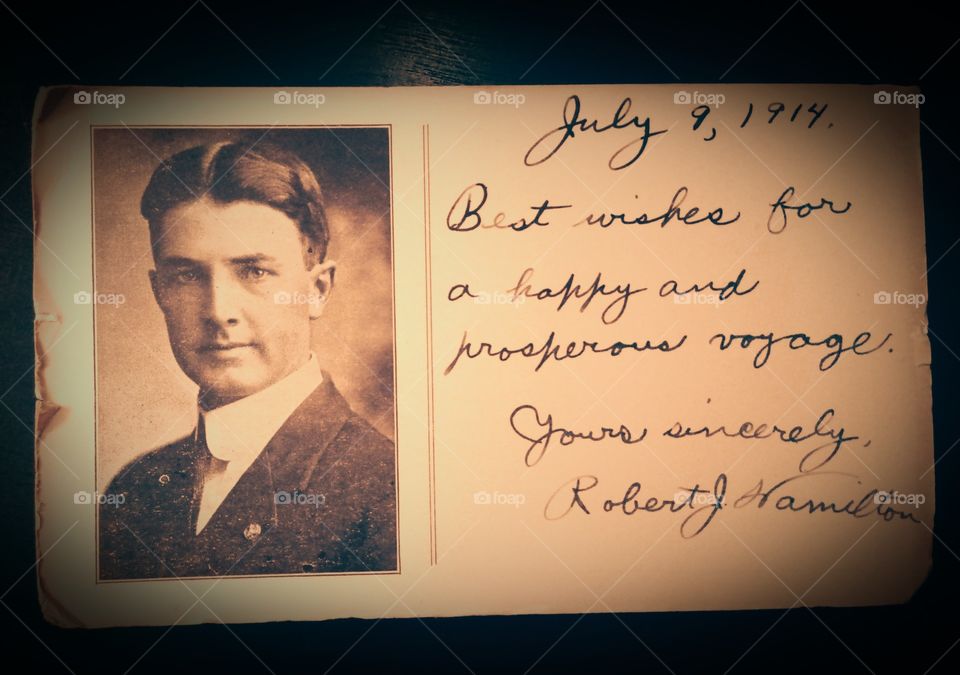 July 9, 1914.
Best wishes for
a happy and
prosperous voyage.
Yours sincerely,
Robert J. Hamilton
foap foap foap foap foap
foap foap foap foap foap
foap foap foap foap foap